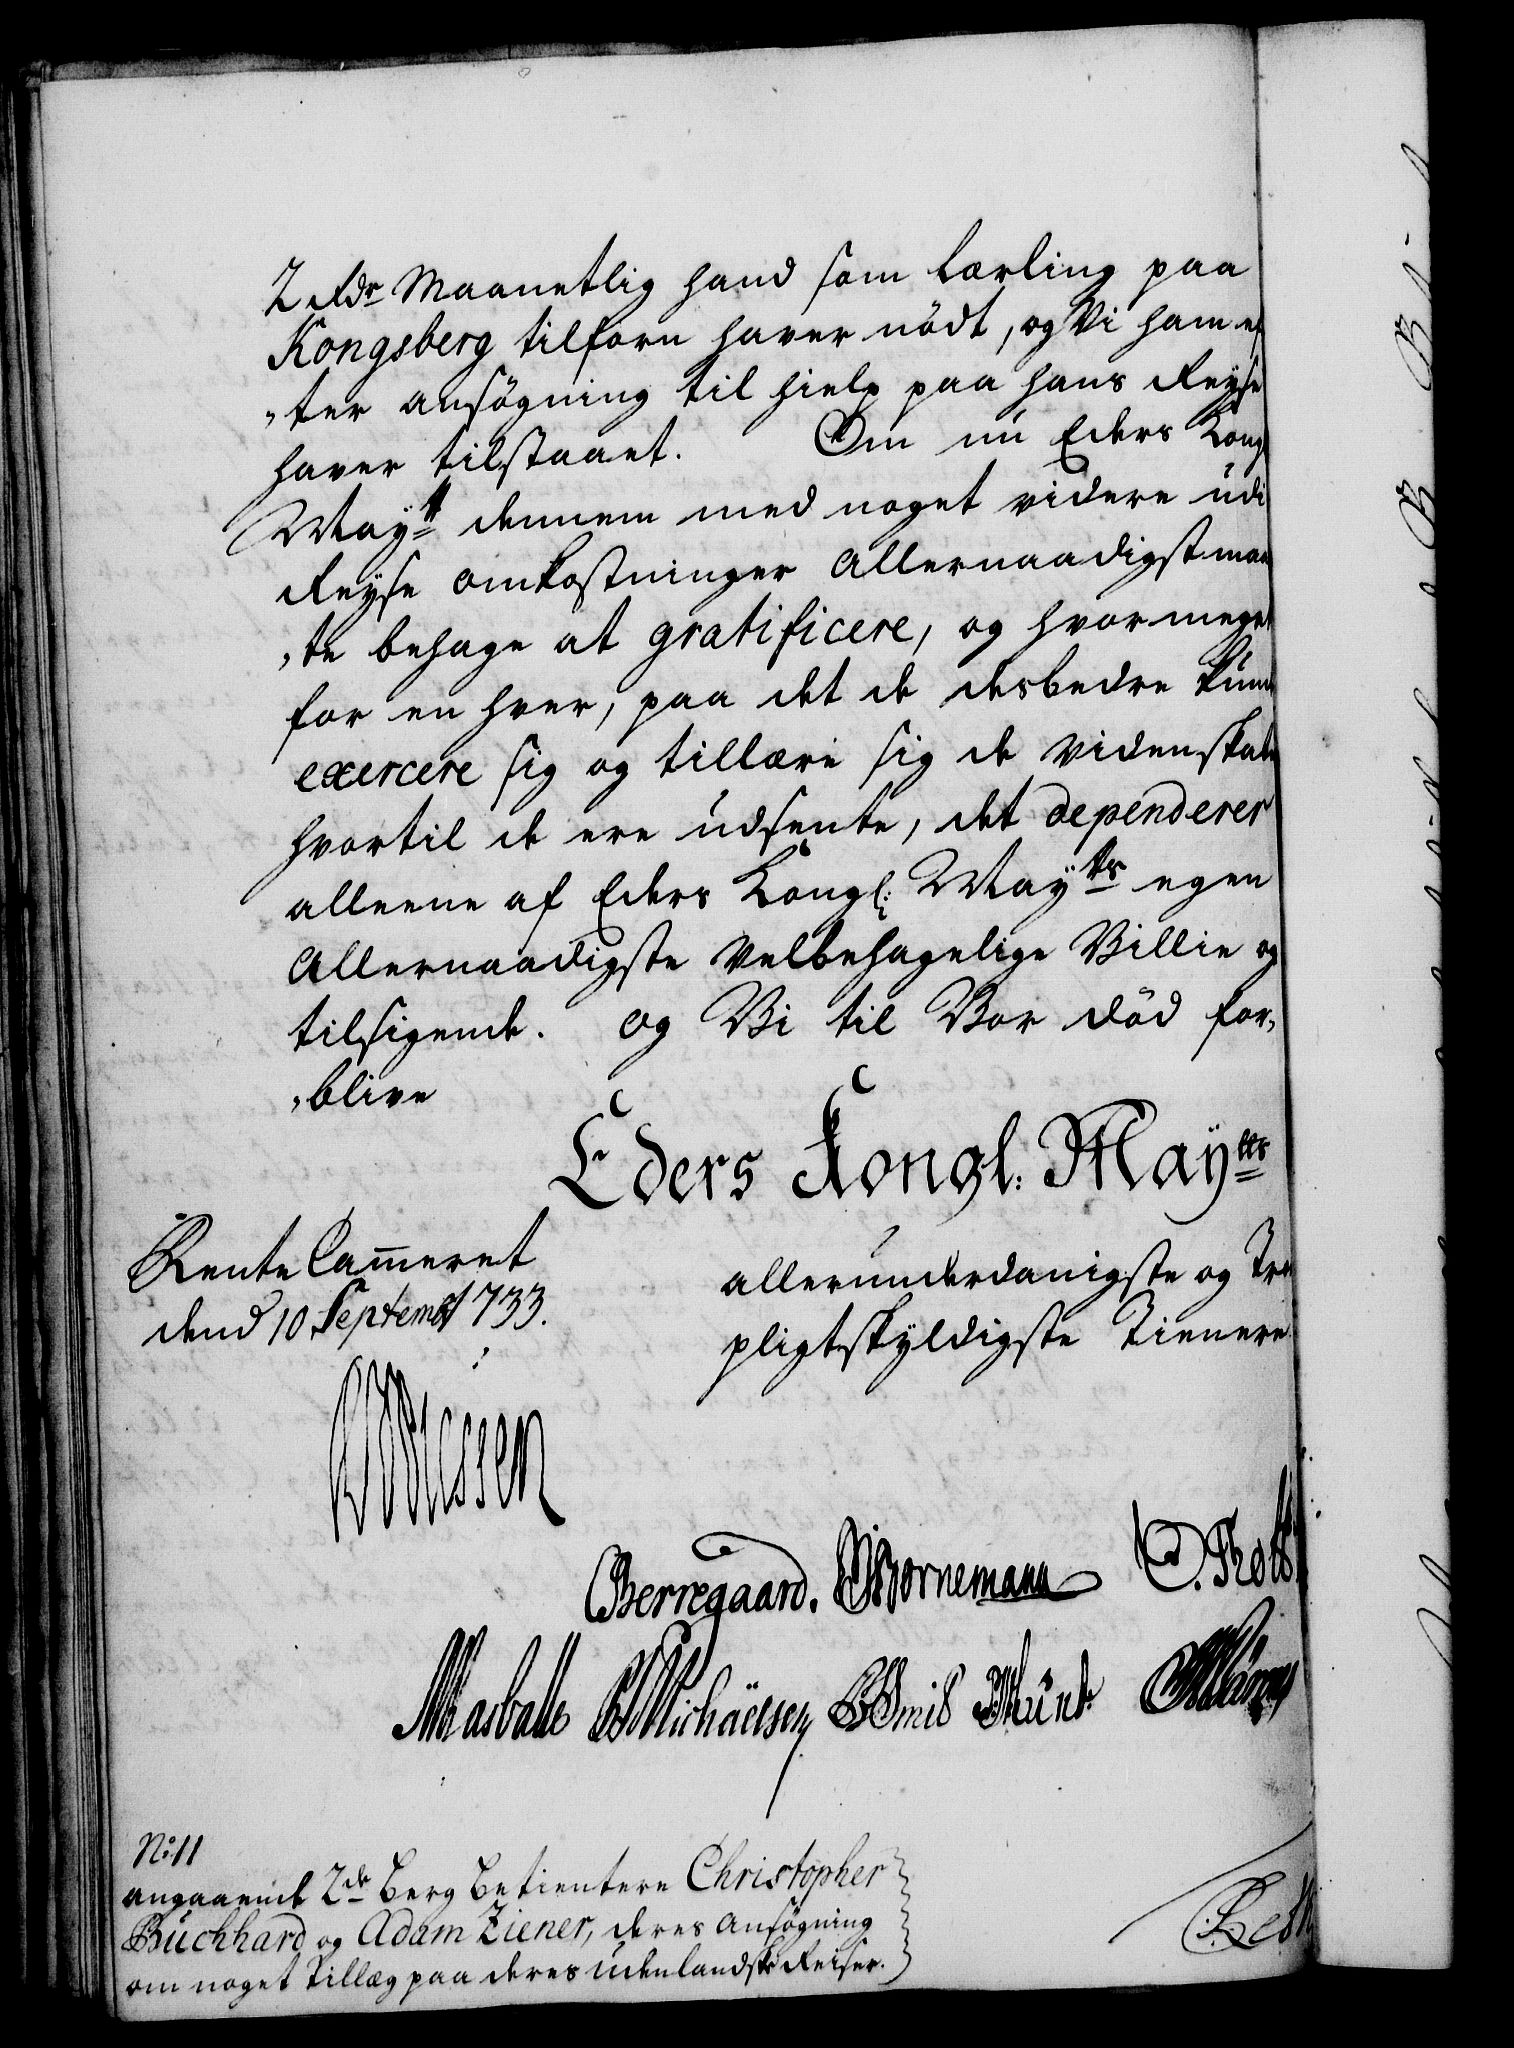 2 Rdr Maanetlig hand som Lærling paa
Kongsberg tilforn haver nödt, og Vi ham ef
,,ter ansögning til hielp paa hans Reyse
haver tilstaaet. Om nu Eders Kongl
Mayt dennem med noget videre udi
Reyse omkostninger Allernaadigst maa
,,te behage at gratificere, og hvor meget
for en hver, paa det de desbedre kunde
exercere sig og tillære sig de Videnskab
hvortil de ere udsente, det dependerer
alleene af Eders Kongl: Mayts egen
Allernaadigste Velbehagelige Villie og
tilsigende. og Vi til Vor död for,,
,,blive
Eders Kongl: Mayts
Rente Cammeret
dend 10 Septembr 1733.
allerunderdanigste og Tro
pligtskyldigste Tienere
Berregaard. Bornemann
Masbach Michäelsen Smid Munk
No: 11
angaaende 2de Berg Betientere Christopher
Buchhard og Adam Ziener, deres Ansögning
om noget Tillæg paa deres Udenlandske Reiser.